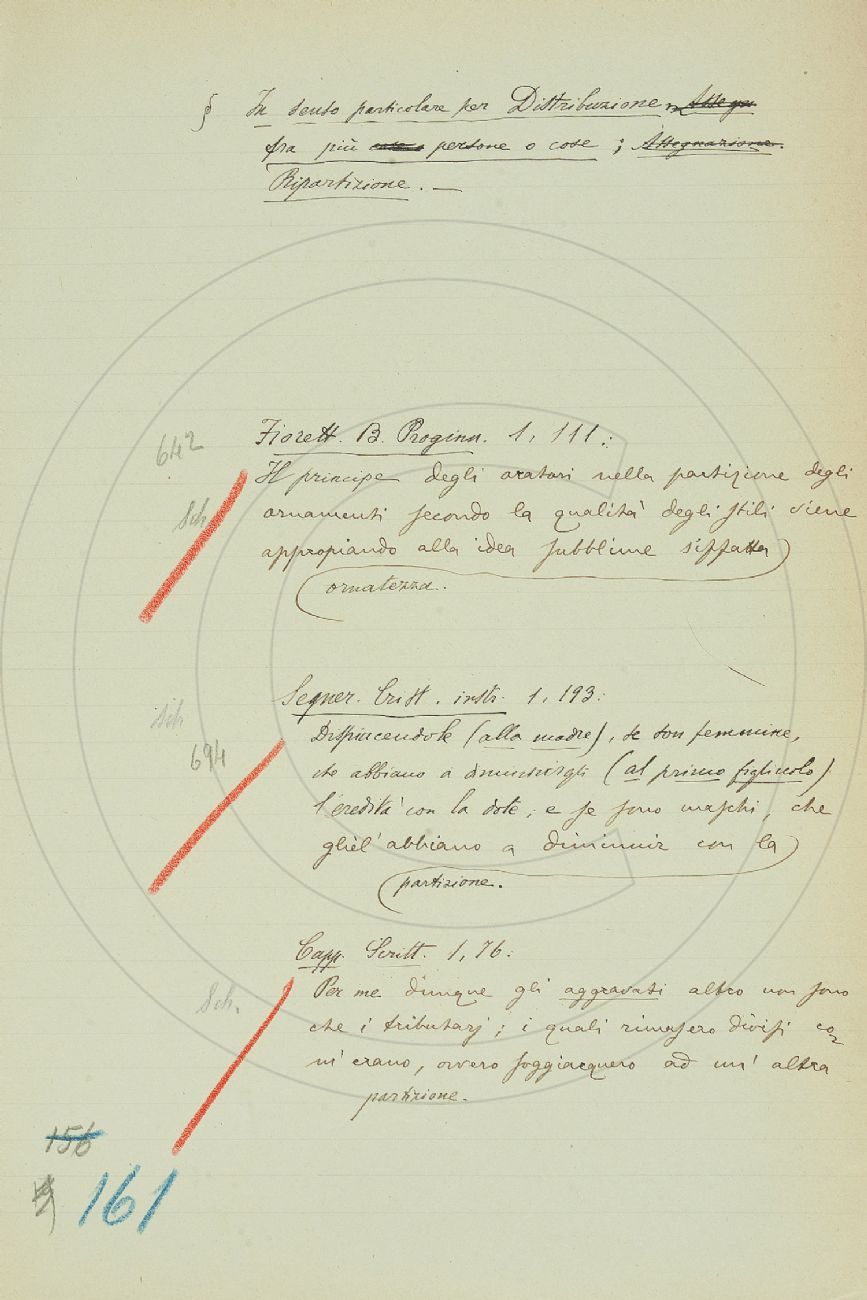 § In senso particolare per Distribuzione, Assegn
fra più cose persone o cose; Assegnazione.
Ripartizione. —
642
Fiorett. B. Proginn. 1, 111:
Il principe degli oratori nella partizione degli
Sch
ornamenti secondo la qualità degli stili viene
appropiando alla idea subblime siffatta
ornatezza.
Segner. Crist. instr. 1, 193:
Sch
Dispiacendole (alla madre), se son femmine,
694
che abbiano a diminuirgli (al primo figliuolo)
l'eredità con la dote; e se sono maschi, che
gliel' abbiano a diminuir con la
partizione.
Capp. Scritt. 1, 76:
Sch.
Per me dunque gli aggravati altro non sono
che i tributarj; i quali rimasero divisi co
m' erano, ovvero soggiacquero ad un' altra
partizione.
156
161